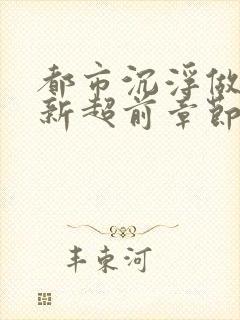 都市沉浮做
新超前章節
丰束河